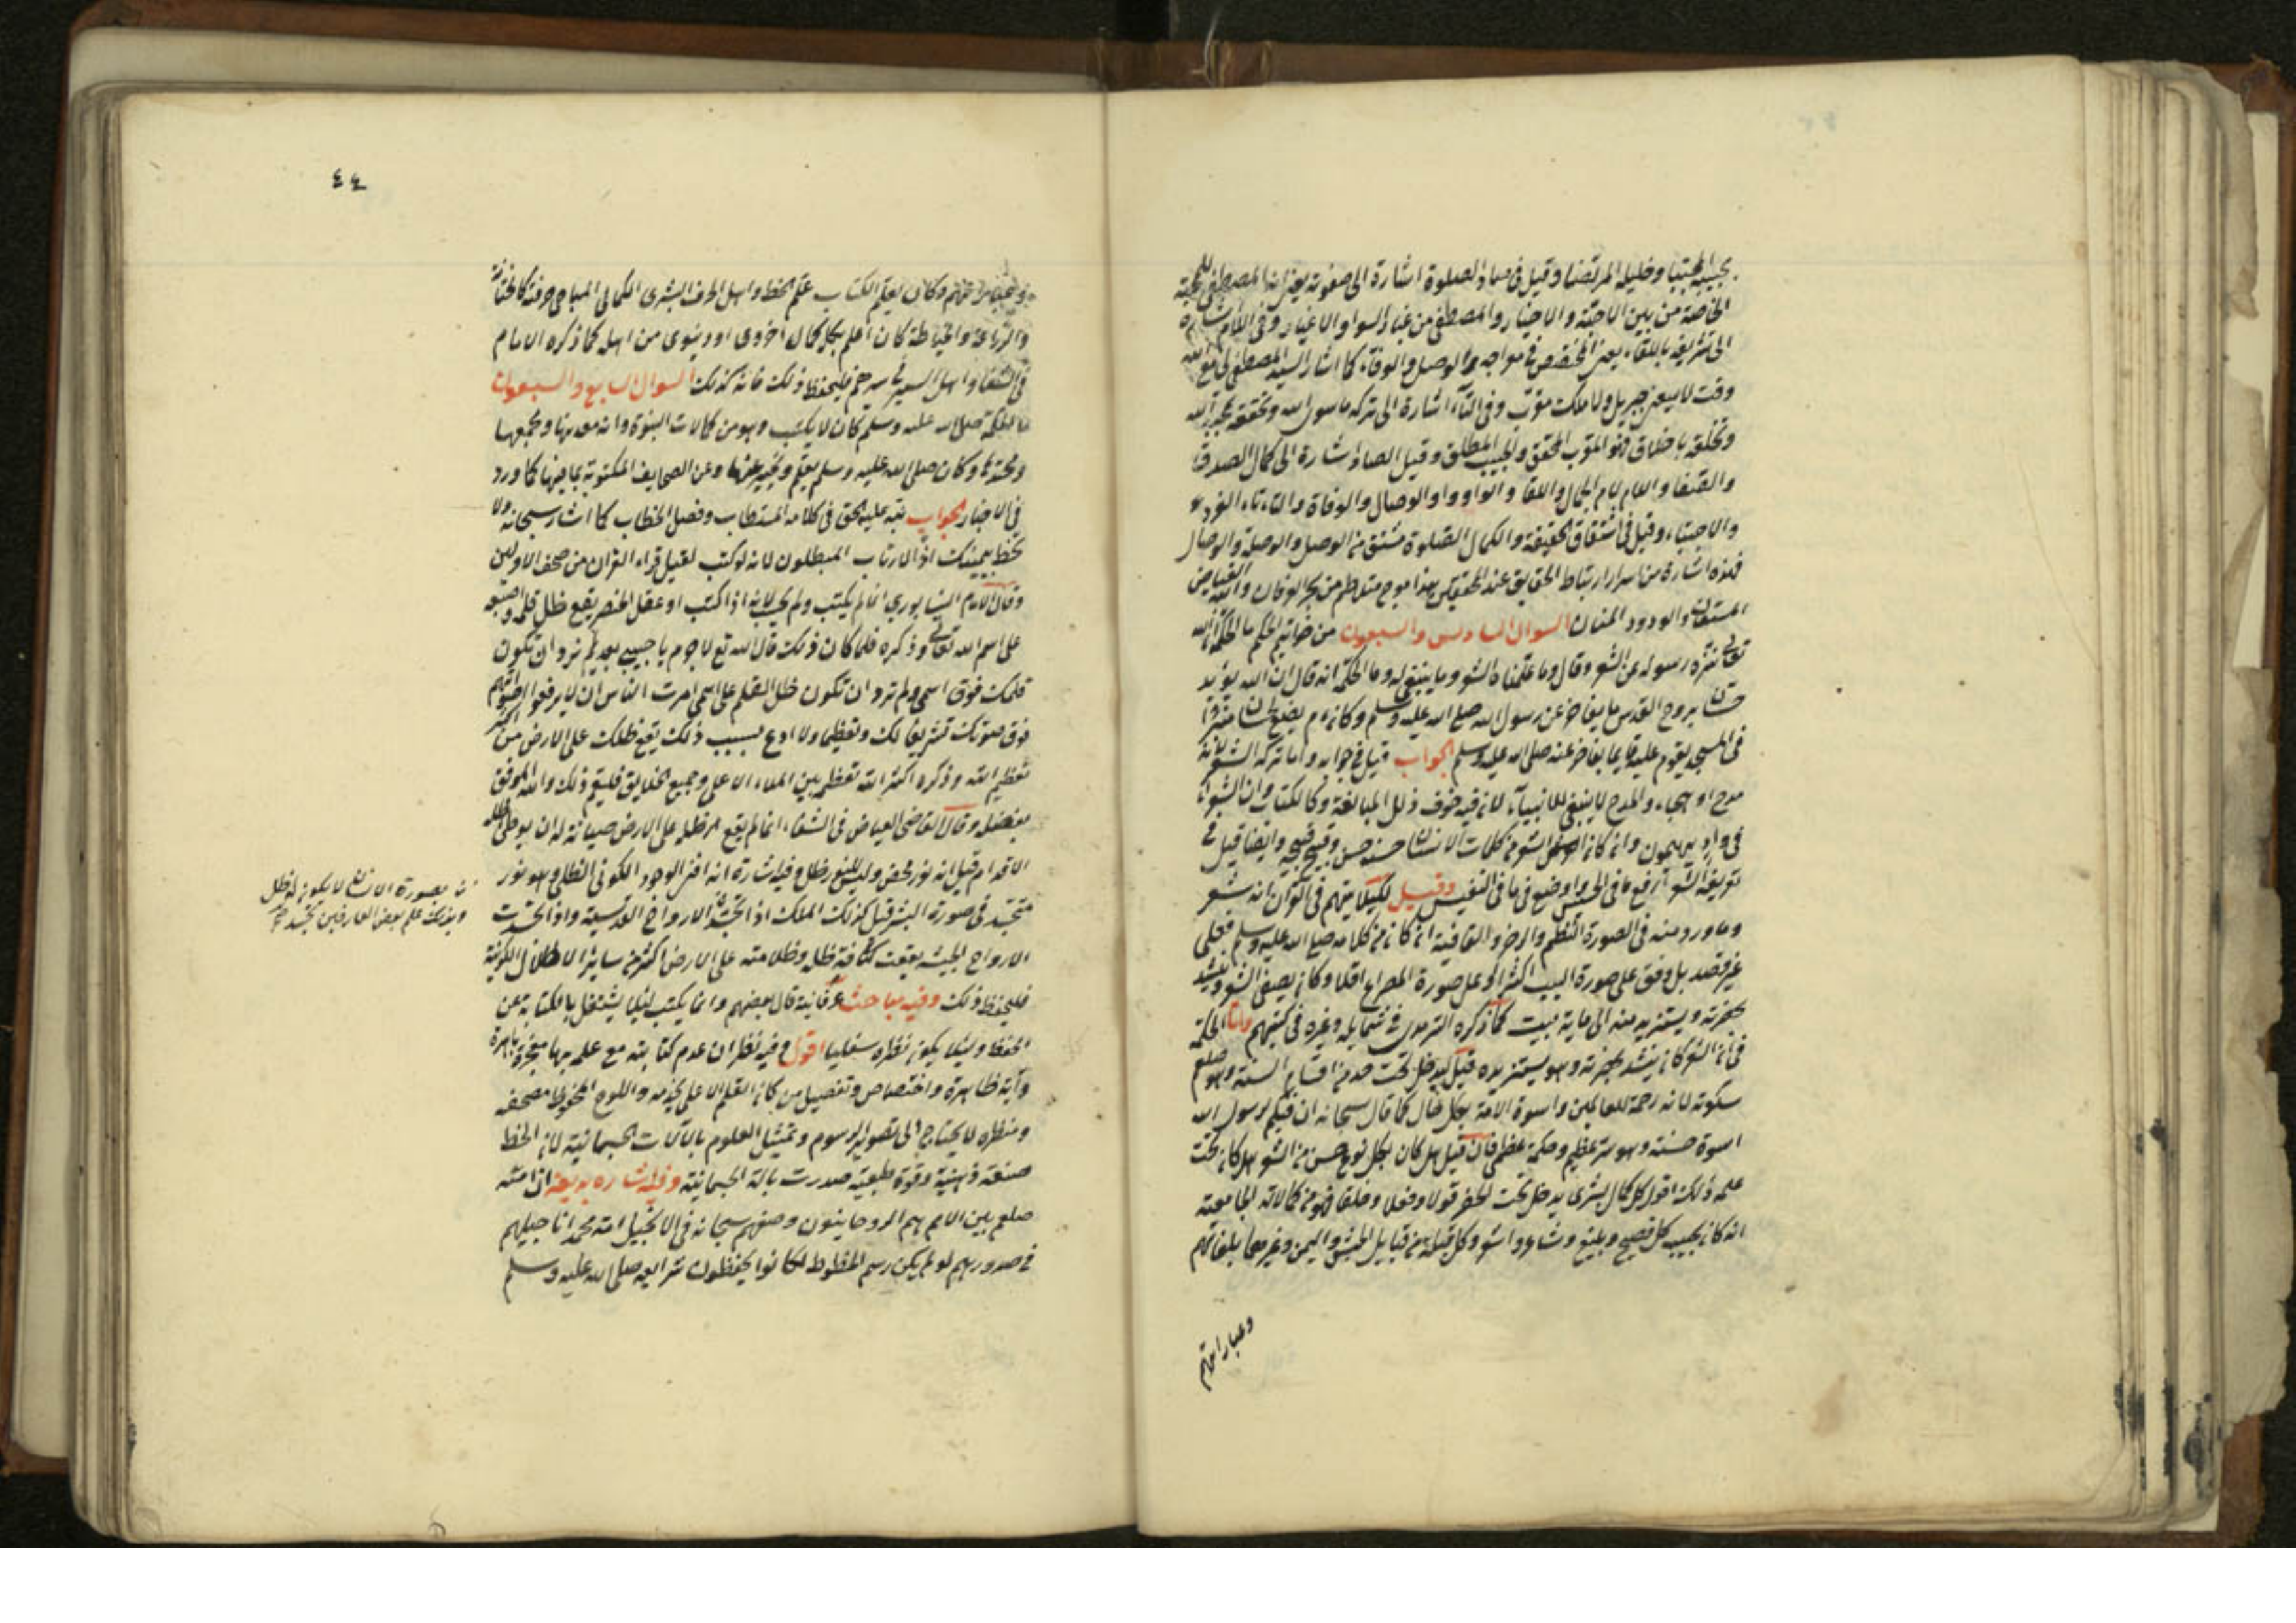 بحبيبه المجتبا وخليله المرتضا وقيل فى صاد الصلوة اشارة الى صفوته يعنى انه المصطفى للمحبة
الخاصة من بين الاحبة والاخيار والمصطفى من غبار السوا والاغيار وفى اللام اشارة
الى تشريفه باللقاء يعنى المختص فى مواجهه الوصل والوفاء كما اشار السيد المصطفى لى مع الله
وقت لا يسعنى جبريل ولا ملك مقرب وفى التاء اشارة الى تركه ما سوى الله وتحققه
وتخلقه باخلاق فهو المقرب المحقق والحبيب المطلق وقيل الصاد اشارة الى كمال الصدق
والصفا واللام لام الجمال واللقا والواو واو الوصال والوفاة والتاء تاء
والاجتباء وقيل فى اشتقاق الحقيقة والكمال الصلوة مشتق من الوصل والوصلة والوصال
فهذه اشارة من اسرار ارتباط الحقايق عند المحققين هذا موج متلاطم من بحر العرفان والله الفياض
المستعان والودود المنان السوال السادس والسبعون من خواتيم الحكم ما الحكمة ان الله
تعالى نزه رسوله عن الشعر وقال وما علمناه الشعر وما ينبغى له وما الحكمة انه قال ان الله يؤيد
حسان بروح القدس ما يفاخر عن رسول الله صلى الله عليه وسلم وكان م يضع لحسان منبرا
فى المسجد يقوم عليه قايما يفاخر عنه صلى الله عليه وسلم الجواب قيل فى جوابه واما تركه الشعر لانه
مدح او هجاء والمدح لا ينبغى للانبياء لانه فيه خوف ذلل المبالغة وكالكتاب وان الشعراء
فى واد يهيمون وان كان الشعر من كلمات الانسان حسنه حسن وقبيح قبيحه وايضا قيل فى
تعريف الشعر ارفع ما فى الخسيس واوضع فى ما فى النفيس وقيل لكيلا يتهم فى القرآن انه شعر
وما ورد منه فى الصورة النظم والرجز والقافية ان كان من كلامه صلى الله عليه وسلم فعلى
غير قصد بل وفق على صورة البيت اكثر او على صورة المصراع اقلا وكان يصغى الشعر وينشد
بحضرته ويستزيد منه الى ماية بيت كما ذكره الترمذى فى شمايله وغيره فى كتبهم واما الحكمة
فى ان الشعر كان ينشد بحضرته وهو يستزيده قيل ليدخل تحت صدق اقسام السنة وهو صلعم
سكوته لانه رحمة للعالمين واسوة الامة بكل حال كما قال سبحانه ان فيكم رسول الله
اسوة حسنة وهو سر عظيم وحكمة عظمى فان قيل هل كان بكل نوع حسن من الشعر هل كان تحت
علمه ذلك اقول كل كمال بشرى يدخل تحت الحضر قولا وفعلا وخلقا فهو من كمالاته الجامعة
انه كان يجيب كل فصيح وبليغ وشاعر واشعر وكل قبيلة من قبايل الحبش واليمن وغيرهما بلغاتهم
وعباراتهم
٤٤
وكان يعلم الكتاب علم الخط واهل الحرف البشرى الكمالى المباحى حرفته كالختانة
والزراعة والخياطة كان اعلم بكل كمال اخروى او دنيوى من اهله كما ذكره الامام
فى الشفا واهل السير فى سيرهم فليحفظ ذلك فانه كذلك السوال السابع والسبعون
ما الحكمة صلى الله عليه وسلم كان لا يكتب وهو من كمالات النبوة وانه معدنها ومجمعها
ومحتدها وكان صلى الله عليه وسلم يعلم ويخبر عنها وعن الصحايف المكتوبة بما فيها كما ورد
فى الاخبار الجواب نبه عليه الحق فى كلامه المستطاب وفصل الخطاب كما اشار سبحانه ولا
تخطه بيمينك اذا لارتاب المبطلون لانه لو كتب لقيل قراء القران من صحف الاولين
وقال الامام النيسابورى انما لم يكتب ولم يحسب لانه اذا كتب او عقد الخنصر يقع ظل قلمه واصبعه
على اسم الله تعالى وذكره فلما كان ذلك قال الله تع لا جرم يا حبيبى بعد لم ترد ان تكون
قلمك فوق اسمى ولم ترد ان تكون ظل القلم على اسمى امرت الناس ان لا يرفعوا اصواتهم
فوق صوتك تشريفا لك وتعظيما ولا ادع بسبب ذلك يقع ظلك على الارض من اكثر
تعظيم الله وذكره اكثر الله تعظيمه بين الملاء الاعلى وجميع الخلايق فليتم ذلك والله الموفق
بفضله وقال القاضى العياض فى الشفاء انما لم يقع ظله على الارض صيانة له ان يوطى ظله
الاقدام قيل انه نور محض وليس للنور ظل وفيه اشارة انه افنى الوجود الكونى الظلى وهو نور
متجسد فى صورة البشر قيل كذلك الملك اذا تجسد الارواح القدسية واذا تجسدت
الارواح الخبيثه يقعت كثافة ظله وظلامته على الارض اكثر من سايز الاظلال الكونية
فليحفظ ذلك وفيه مباحث عرفانية قال بعضهم وانما يكتب ليلا يشتغل بالكتابة عن
الحفظ وليلا يكون نظره سفليا اقول وفيه نظر ان عدم كتابته مع علمه بها معجزة باهرة
وآية ظاهرة واختصاص وتفضيل من كان القلم الاعلى يخدمه واللوح المحفوظ مصحفه
ومنظره لا يحتاج الى تصوير الرسوم وتمثيل العلوم بالآلات الجسمانية لان الخط
صنعة ذهنية وقوة طبعية صدرت بالة الجسمانية وفيه اشاره بديعة ان امته
صلعم بين الامم هم الروحانيون وصفهم سبحانه فى الانجيل امة محمد اناجيلهم
فى صدورهم لو لم يكن رسم الخطوط لكانوا يحفظون شرايعه صلى الله عليه وسلم
بصورة الانسان لا يكون له ظل
وبذلك علم بعض العارفين تجسد